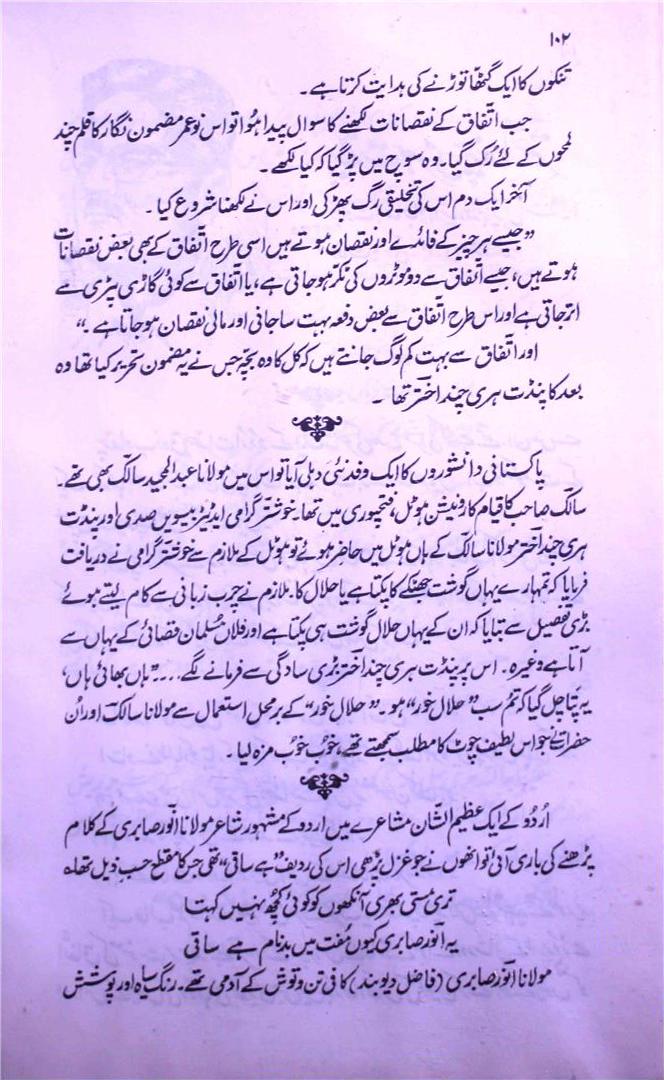 ۱۰۲
تنکوں کا ایک گٹھا توڑنے کی ہدایت کرتا ہے۔
جب اتفاق کے نقصانات لکھنے کا سوال پیدا ہوا تو اس نو عمر مضمون نگار کا قلم چند
لمحوں کے لئے رک گیا۔ وہ سوچ میں پڑ گیا کہ کیا لکھے۔
آخر ایک دم اس کی تخلیقی رگ پھڑکی اور اس نے لکھنا شروع کیا۔
”جیسے ہر چیز کے فائدے اور نقصان ہوتے ہیں اسی طرح اتفاق کے بھی بعض نقصانات
ہوتے ہیں، جیسے اتفاق سے دو موٹروں کی ٹکر ہو جاتی ہے، یا اتفاق سے کوئی گاڑی پٹری سے
اتر جاتی ہے اور اس طرح اتفاق سے بعض دفعہ بہت سا جانی اور مالی نقصان ہو جاتا ہے۔“
اور اتفاق سے بہت کم لوگ جانتے ہیں کہ کل کا وہ بچہ جس نے یہ مضمون تحریر کیا تھا وہ
بعد کا پنڈت ہری چند اختر تھا۔
پاکستانی دانشوروں کا ایک وفد نئی دہلی آیا تو اس میں مولانا عبدالمجید سالک بھی تھے۔
سالک صاحب کا قیام کارونیشن ہوٹل، فتحپوری میں تھا۔ خوشتر گرامی ایڈیٹر بیسویں صدی اور پنڈت
ہری چند اختر مولانا سالک کے ہاں ہوٹل میں حاضر ہوئے تو ہوٹل کے ملازم سے خوشتر گرامی نے دریافت
فرمایا کہ تمہارے یہاں گوشت جھٹکے کا پکتا ہے یا حلال کا۔ ملازم نے چرب زبانی سے کام لیتے ہوئے
بڑی تفصیل سے بتایا کہ ان کے یہاں حلال گوشت ہی پکتا ہے اور فلاں مسلمان قصائی کے یہاں سے
آتا ہے وغیرہ۔ اس پر پنڈت ہری چند اختر بڑی سادگی سے فرمانے لگے ....”ہاں بھائی ہاں،
یہ پتا چل گیا کہ تم سب ”حلال خور“ ہو۔“ ”حلال خور“ کے برمحل استعمال سے مولانا سالک اور اُن
حضرات نے جو اس لطیف چوٹ کا مطلب سمجھتے تھے، خوب خوب مزہ لیا۔
اُردو کے ایک عظیم الشان مشاعرے میں اردو کے مشہور شاعر مولانا انور صابری کے کلام
پڑھنے کی باری آئی تو انھوں نے جو غزل پڑھی اس کی ردیف ”ہے ساقی“ تھی جس کا مقطع حسب ذیل تھا؎
تری مستی بھری آنکھوں کو کوئی کچھ نہیں کہتا
یہ انور صابری کیوں مفت میں بدنام ہے ساقی
مولانا انور صابری (فاضل دیوبند) کافی تن و توش کے آدمی تھے۔ رنگ سیاہ اور پوشش